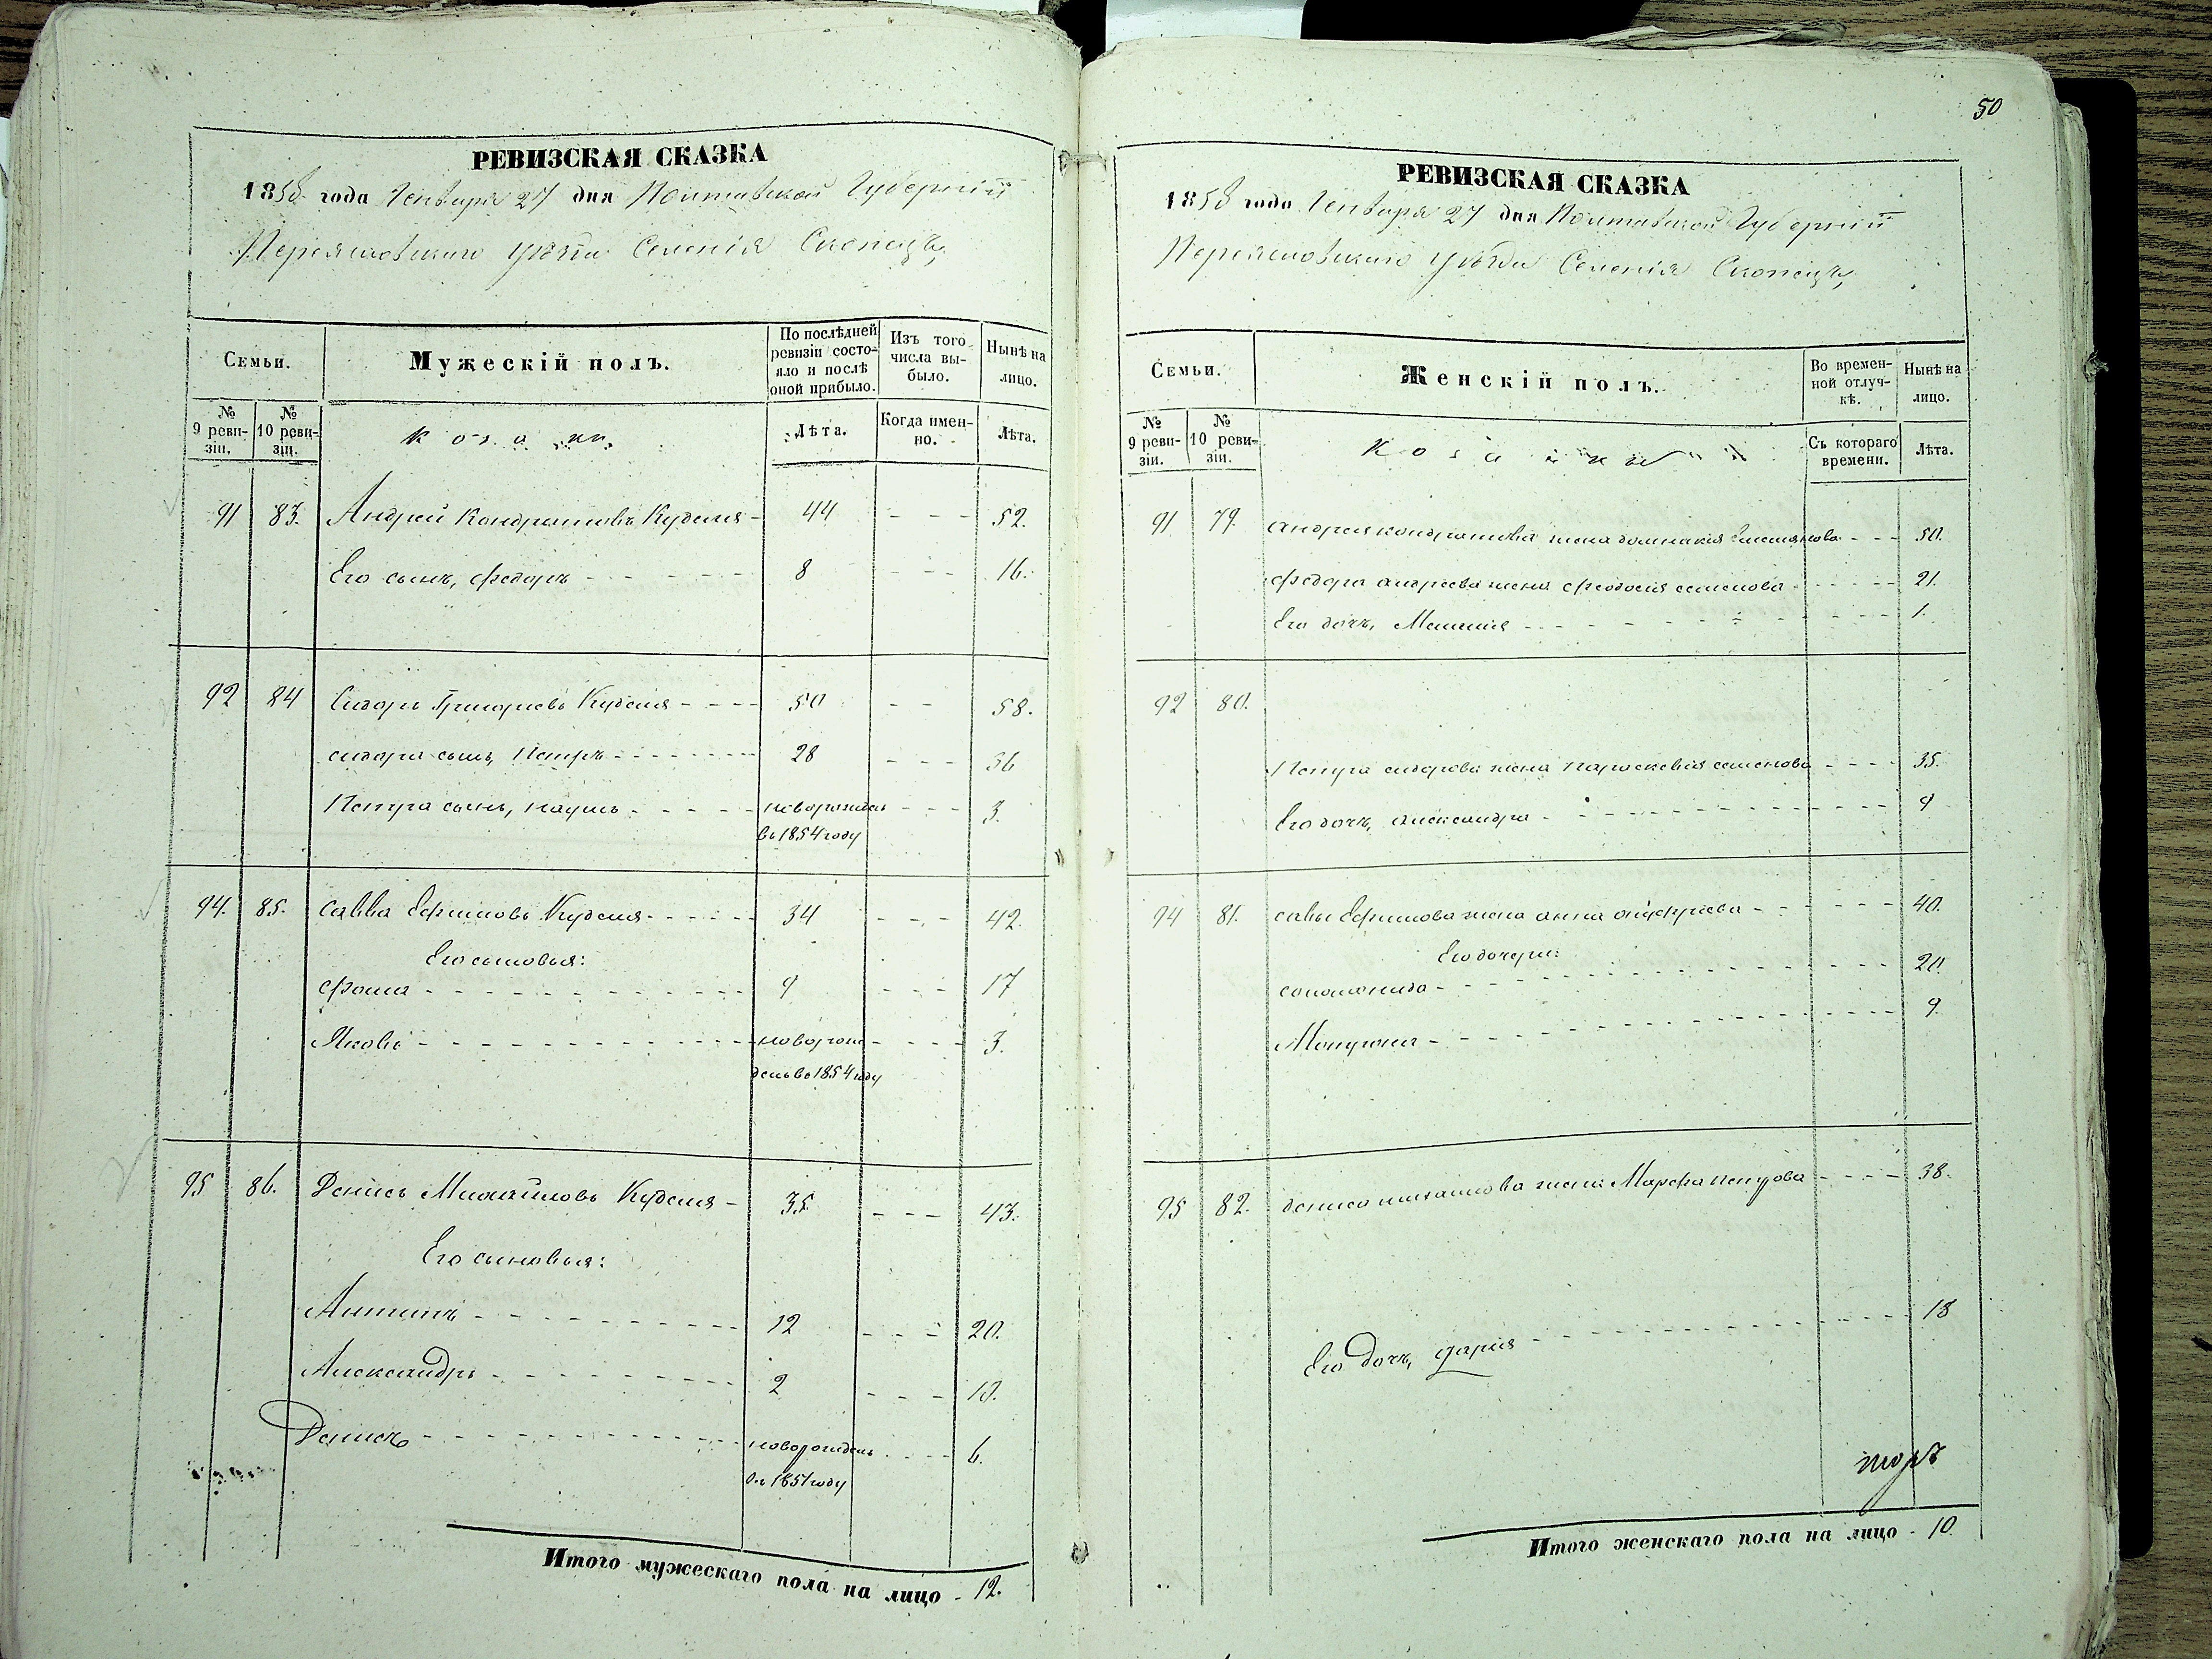 50
РЕВИЗСКАЯ СКАЗКА
1858 года Генваря 27 дня Полтавской Губерніи
Переяславскаго уѣзда Селенія Скопецъ,
Семьи.
Мужескій полъ.
По послѣдней ревизіи состояло и послѣ оной прибыло.
Изъ того числа выбыло.
Нынѣ на лицо.
№ 9 ревизіи.
№ 10 ревизіи.
козаки
Лѣта.
Когда именно.
Лѣта.
91 83. Андрей Кондратовъ Куделя - 44 - - - 52.
Его сынъ, Федоръ - - - - - - 8 - - - 16.
92 84 Сидоръ Григорьевъ Куделя - - - - 50 - - 58.
сидора сынъ, Петръ - - - - - - - - 28 - - - 36
Петра сынъ, наумъ - - - - - новорожденъ - - - 3.
въ 1854 году
94. 85. Савва Ефимовъ Куделя - - - - - 34 - - - 42.
Его сыновья:
Фома - - - - - - - - - - - - 9 - - - 17
Яковъ - - - - - - - - - - - - новорож - - - - 3.
денъ въ 1854 году
95 86. Денисъ Михайловъ Куделя - 35 - - - 43.
Его сыновья:
Антипъ - - - - - - - - - - 12 - - - 20.
Александръ - - - - - - - - - 2 - - - 10.
Денисъ - - - - - - - - - - - новорожденъ - - - - 6.
въ 1851 году
Итого мужескаго пола на лицо - 12.
РЕВИЗСКАЯ СКАЗКА
1858 года Генваря 27 дня Полтавской Губерніи
Переяславскаго уѣзда Селенія Скопецъ,
Семьи.
Женскій полъ.
Во временной отлучкѣ.
Нынѣ на лицо.
№ 9 ревизіи.
№ 10 ревизіи.
Съ котораго времени.
Лѣта.
91 79. Андрея кондратова жена домникія Емельянова - - - 50.
Федора андреева жена Феодосія семенова - - - - - 21.
Его дочь, Меланія - - - - - - - - - - 1.
92 80.
Петра сидорова жена параскевія семенова - - - - 35.
Его дочь, александра - - - - - - - - - - - - 9
94 81. савы Ефимова жена анна - - - - - - 40.
Его дочери:
соломонида - - - - - - - - - - - - - 20
Мотрона - - - - - - - - - - - - - 9.
95 82. дениса михайлова жена Марфа петрова - - - - 38.
Его дочь, дарія - - - - - - - - - - - - 18
Итого женскаго пола на лицо - 10.